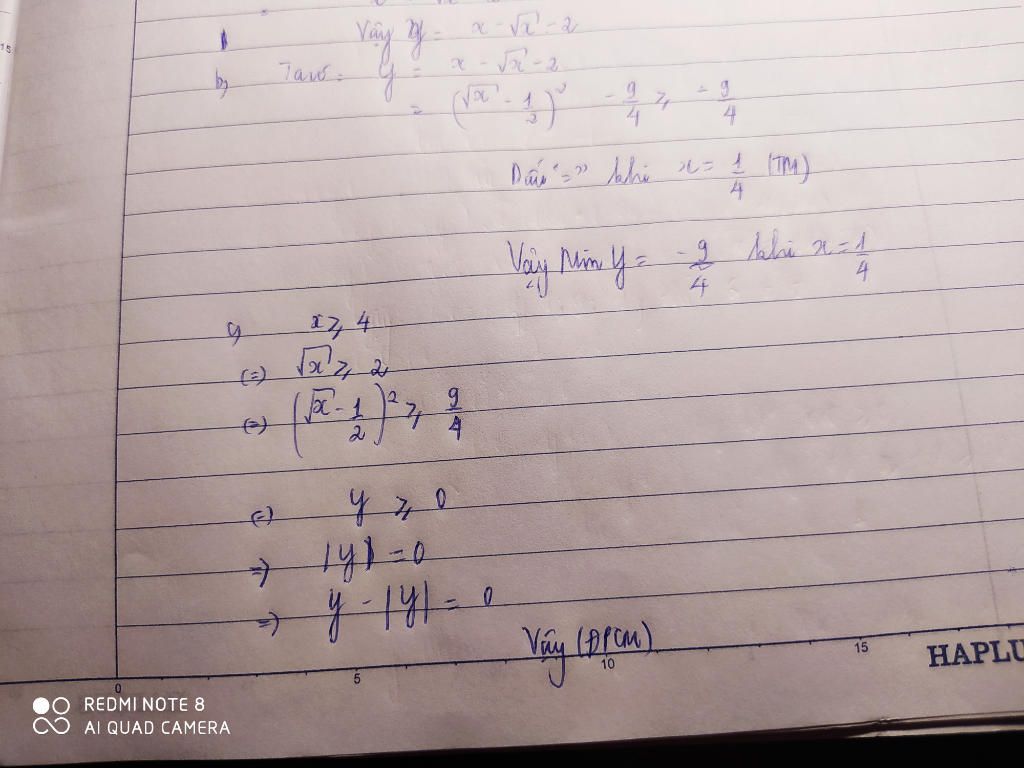 Vậy y = x - √x - 2
b, Ta có: y = x - √x - 2
= (√x - 1/2)² - 9/4 ≥ -9/4
Dấu "=" khi x = 1/4 (TM)
Vậy Min y = -9/4 khi x = 1/4
c, x ≥ 4
(=) √x ≥ 2
(=) (√x - 1/2)² ≥ 9/4
(=) y ≥ 0
=) |y| = 0
=) y - |y| = 0
Vậy (ĐPCM)
0 5 10 15
HAPLU
REDMI NOTE 8
AI QUAD CAMERA